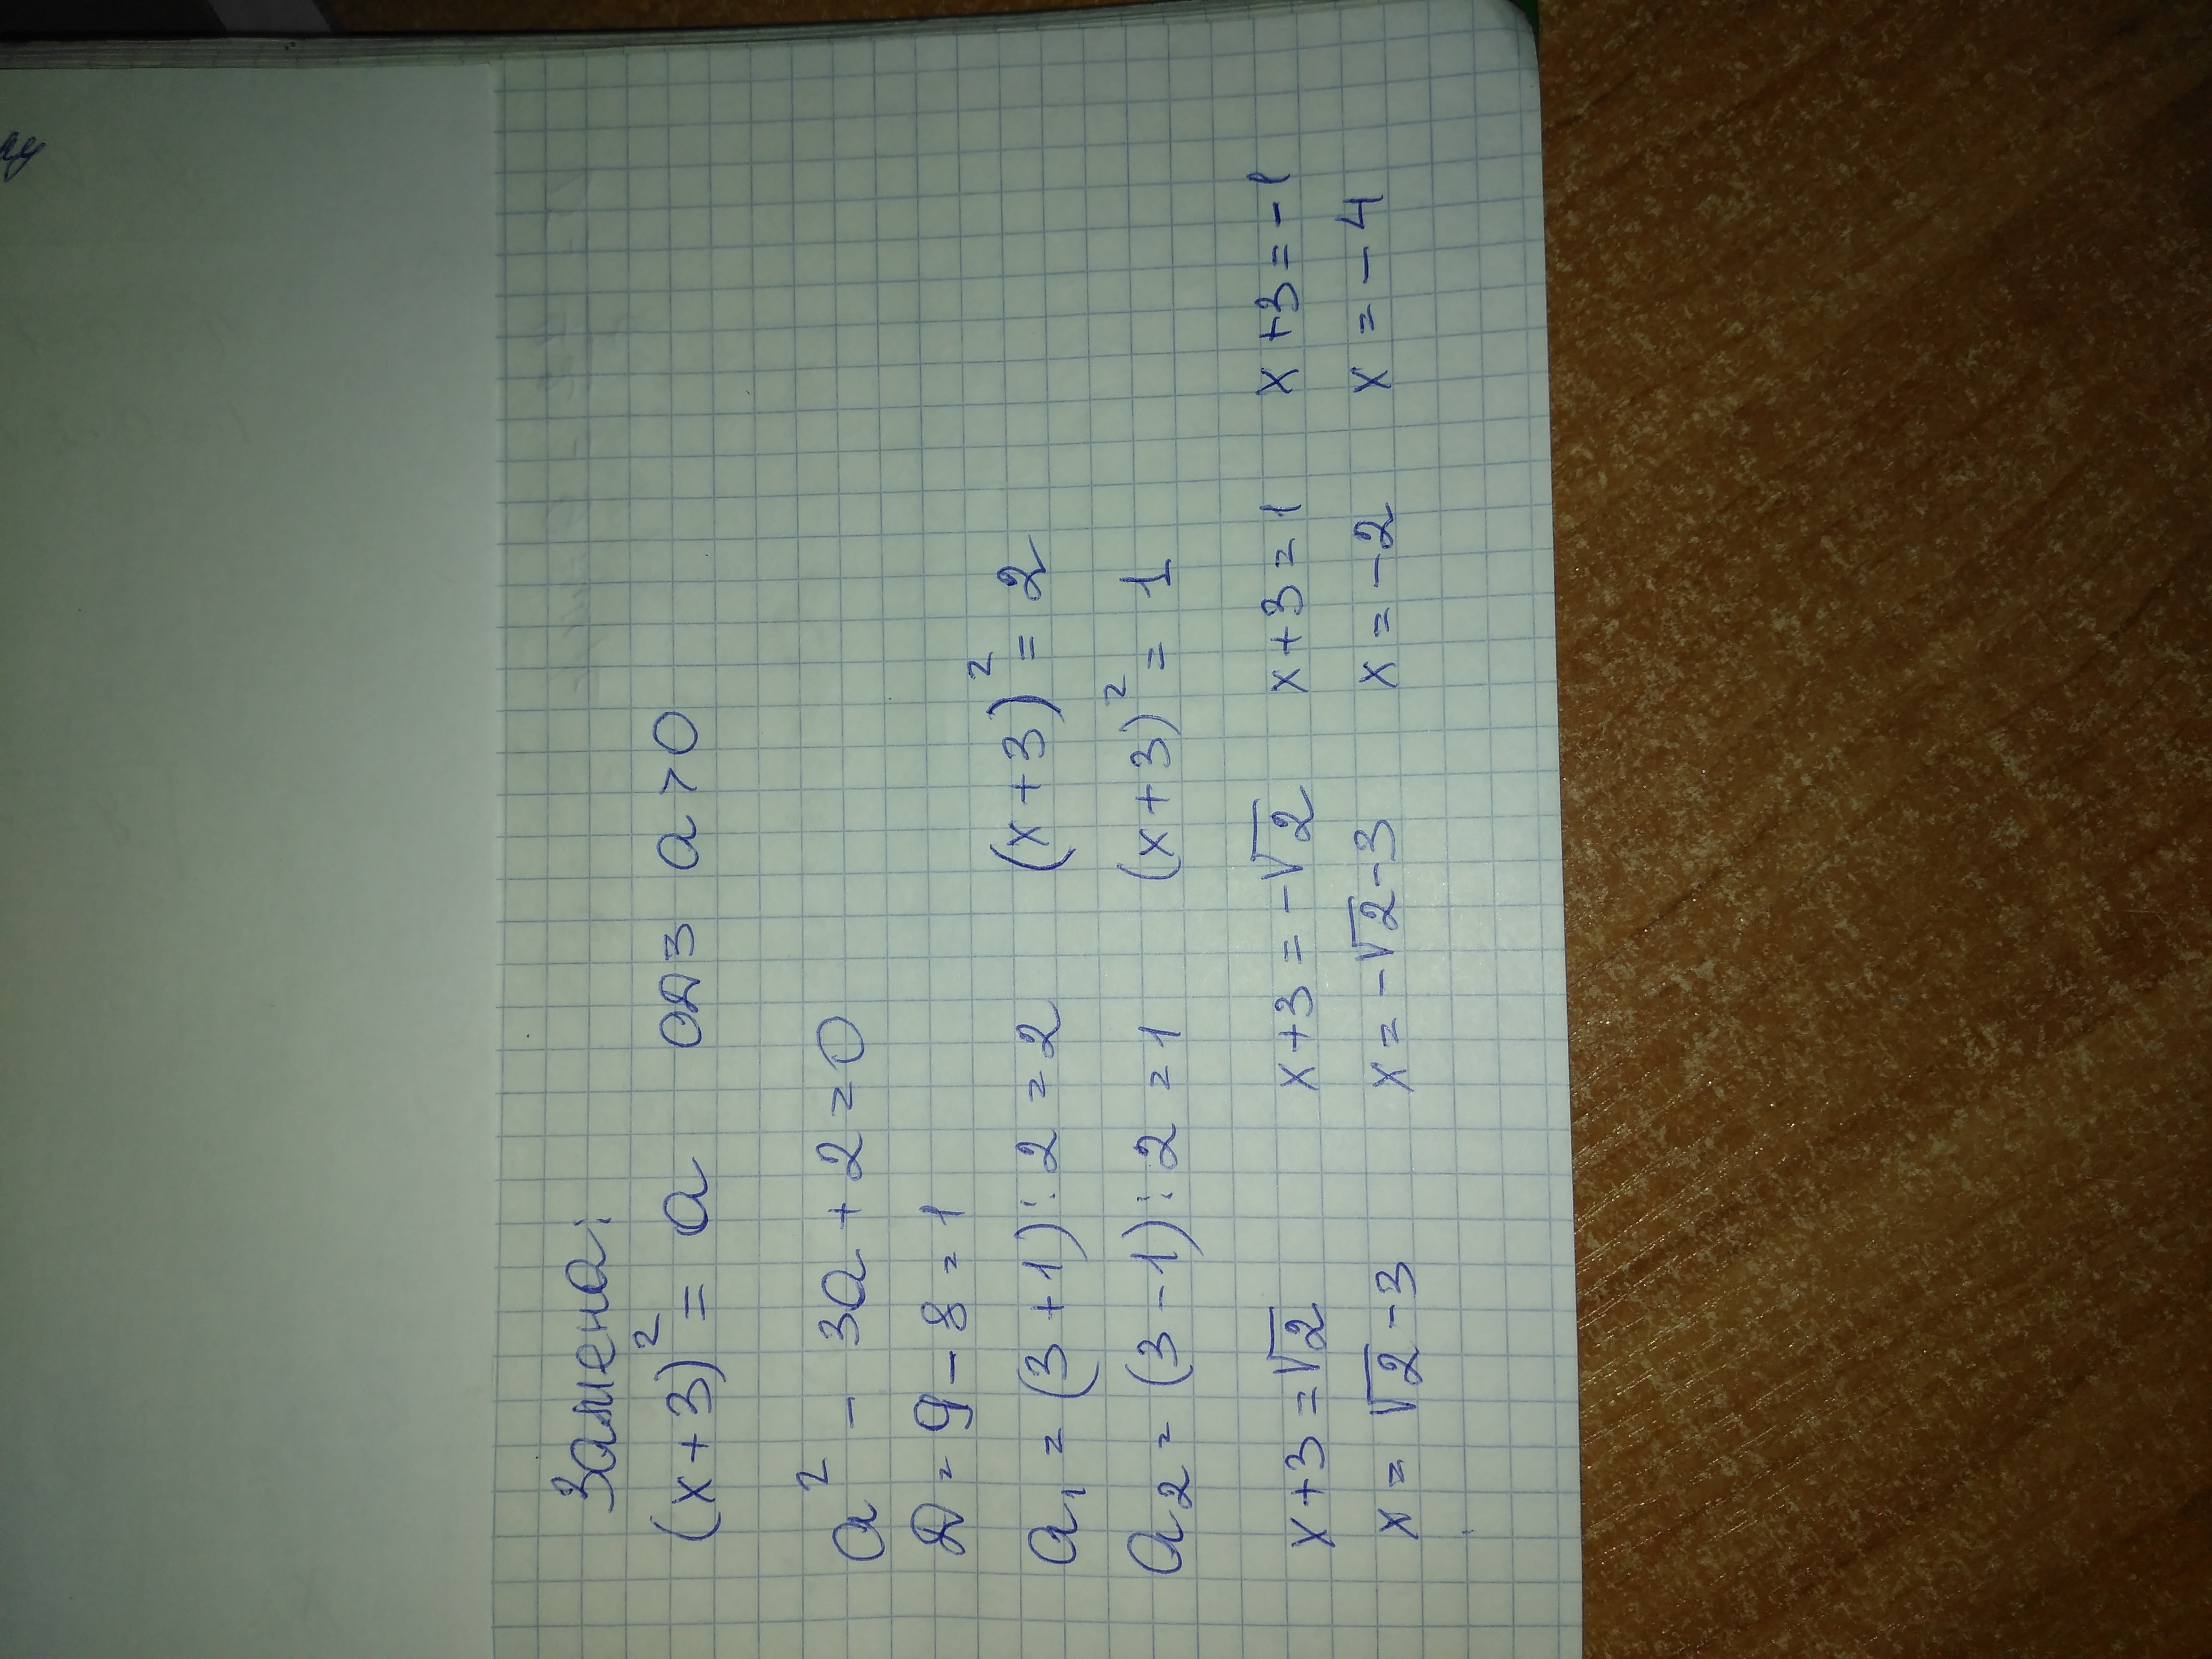 Замена:
(x+3)² = a   ОДЗ a>0
a² - 3a + 2 = 0
D = 9 - 8 = 1
a₁ = (3+1):2 = 2   (x+3)² = 2
a₂ = (3-1):2 = 1   (x+3)² = 1
x+3=√2   x+3=-√2   x+3=1   x+3=-1
x=√2-3   x=-√2-3   x=-2   x=-4